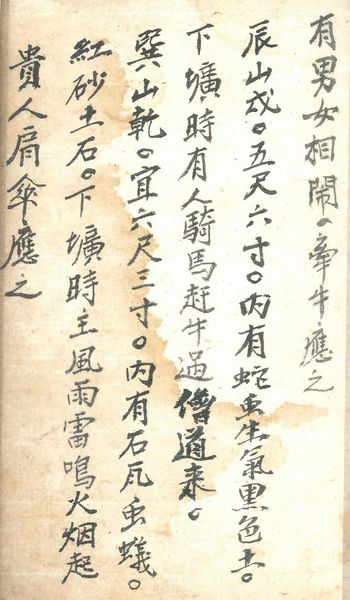 有男女相鬧。牽牛應之
辰山戌。五尺六寸。內有蛇虫生氣黑色土。
下壙時有人騎馬赶牛过僧道來。
巽山乾。宜六尺三寸。內有石瓦虫蟻。
紅砂土石。下壙時主風雨雷鳴火烟起
貴人肩傘應之